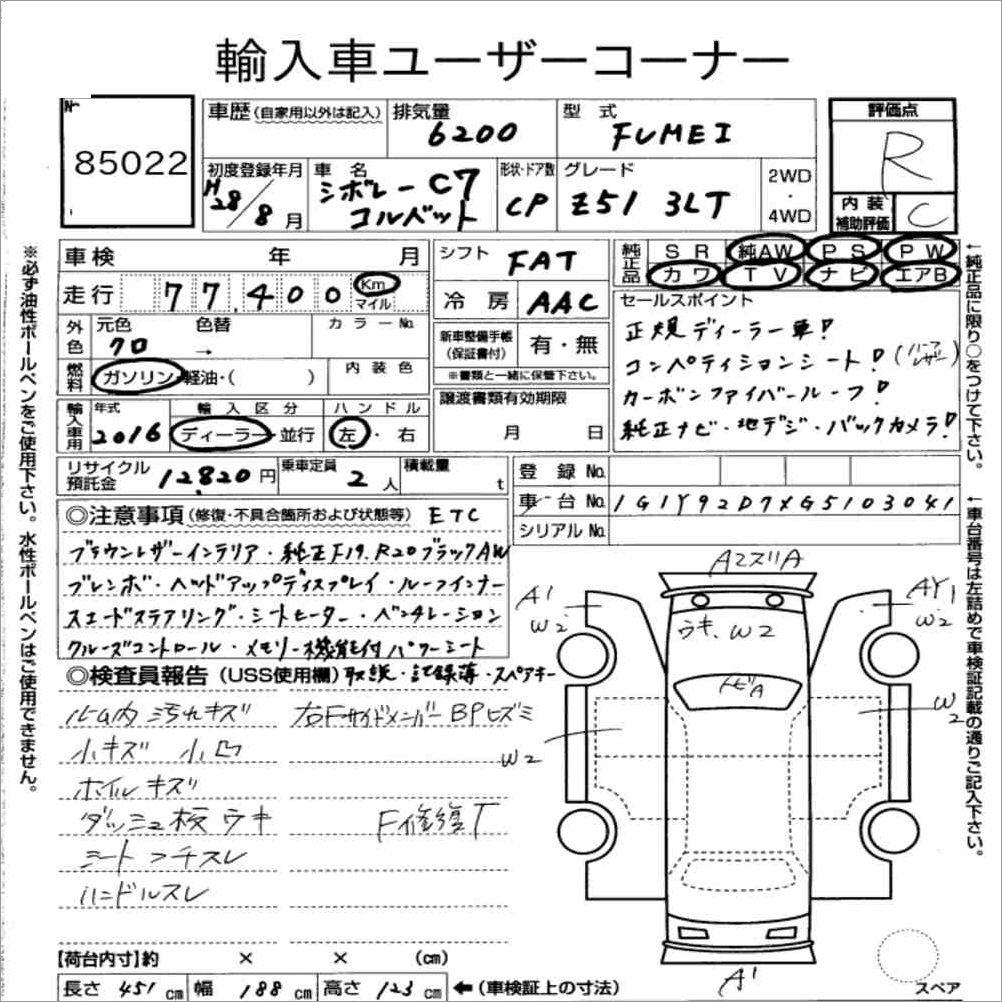 輸入車ユーザーコーナー
85022
車歴 (自家用以外は記入)
排気量
6200
型式
FUMEI
評価点
R
初度登録年月
H28/8月
車名
シボレー C7
コルベット
形状・ドア数
CP
グレード
Z51 3LT
2WD
・
4WD
内装
補助評価
C
車検 年 月
シフト
FAT
純正品
SR 純AW PS PW
カワ TV ナビ エアB
走行 77,400 Km
マイル
冷房 AAC
セールスポイント
正規ディーラー車!
コンペティションシート!
カーボンファイバールーフ!
純正ナビ・地デジ・バックカメラ!
外色
元色 色替 カラーNo.
クロ →
新車整備手帳
(保証書付)
有・無
※書類と一緒に保管下さい。
燃料
ガソリン・軽油・( )
内装色
譲渡書類有効期限
月 日
輸入車用
年式 輸入区分 ハンドル
2016 ディーラー・並行 左・右
リサイクル
預託金
12820円
乗車定員
2人
積載量
t
登録No.
車台No. 1G1Y92D7XG5103041
シリアルNo.
◎注意事項 (修復・不具合箇所および状態等) ETC
ブラウンレザーインテリア・純正F19.R20ブラックAW
ブレンボ・ヘッドアップディスプレイ・ルーフインナー
スエードステアリング・シートヒーター・ベンチレーション
クルーズコントロール・メモリー機能付パワーシート
◎検査員報告 (USS使用欄) 取説・記録簿・スペアキー
ルーム内 汚れキズ 右FサイドメンバーBPヒズミ
小キズ 小凹
ホイルキズ
ダッシュ板ウキ F修復T
シートフチスレ
ハンドルスレ
AマズリA
A1
W2
ウキ、W2
AY1
W2
トビA
W2
W2
A1
スペア
【荷台内寸】約 × × (cm)
長さ 451 cm 幅 188 cm 高さ 123 cm ←(車検証上の寸法)
※必ず油性ボールペンをご使用下さい。水性ボールペンはご使用できません。
←純正品に限り○をつけて下さい。
←車台番号は左詰めで車検証記載の通りご記入下さい。